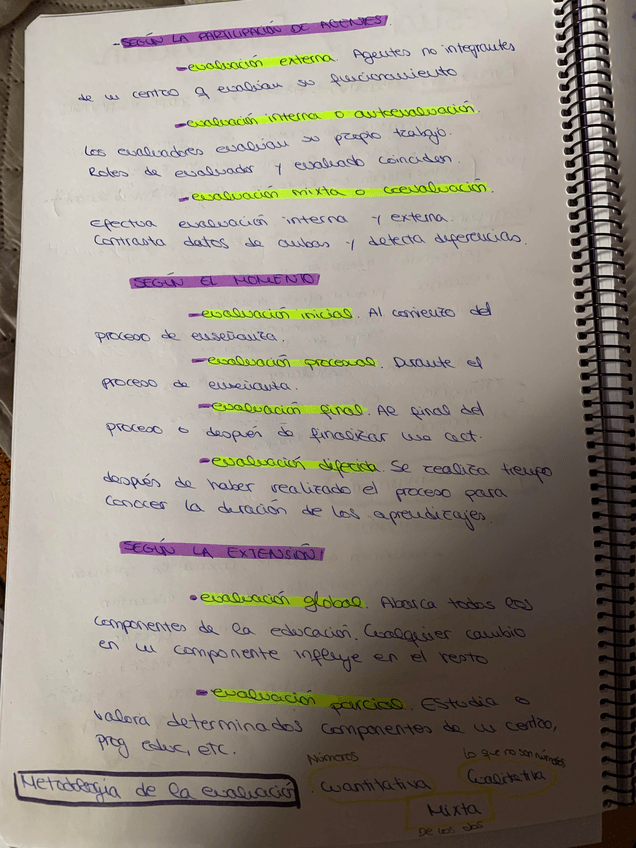 - SEGÚN LA PARTICIPACIÓN DE AGENTES.
- evaluación externa. Agentes no integrantes
de un centro q evalúan su funcionamiento
- evaluación interna o autoevaluación.
Los evaluadores evalúan su propio trabajo.
Roles de evaluador y evaluado coinciden.
- evaluación mixta o coevaluación.
Efectua evaluación interna y externa.
Contrasta datos de ambas y detecta diferencias.
SEGÚN EL MOMENTO
- evaluación inicial. Al comienzo del
proceso de enseñanza.
- evaluación procesual. Durante el
proceso de enseñanza.
- evaluación final. Al final del
proceso o después de finalizar una act.
- evaluación diferida. Se realiza tiempo
después de haber realizado el proceso para
conocer la duración de los aprendizajes.
SEGÚN LA EXTENSIÓN
- evaluación global. Abarca todos los
componentes de la educación. Cualquier cambio
en un componente influye en el resto
- evaluación parcial. Estudia o
valora determinados componentes de un centro,
prog educ, etc.
Números
lo que no son números
Metodología de la evaluación
Cuantitativa
Cualitativa
Mixta
De los dos